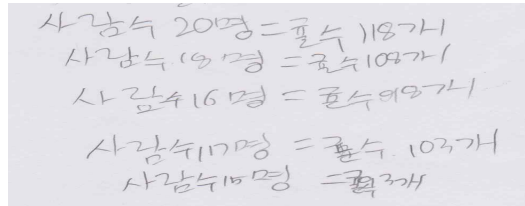 사람수 20명 = 귤수 118개
사람수 18명 = 귤수 108개
사람수 16명 = 귤수 98개
사람수 17명 = 귤수. 103개
사람수 15명 = 93개